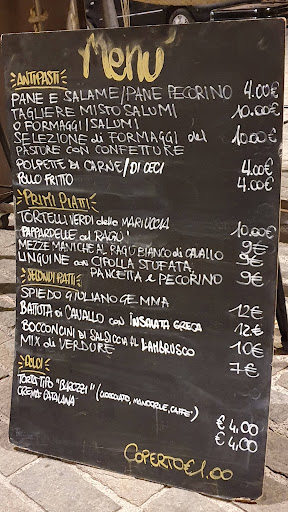 Menu
ANTIPASTI
PANE E SALAME/PANE PECORINO 4.00€
TAGLIERE MISTO SALUMI 10.00€
O FORMAGGI/SALUMI
SELEZIONE di FORMAGGI del 10.00€
PASTORE CON CONFETTURE
POLPETTE DI CARNE/DI CECI 4.00€
POLLO FRITTO 4.00€
PRIMI PIATTI
TORTELLI VERDI della MARIUCCIA 10.00€
PAPPARDELLE al RAGÙ 9€
MEZZE MANICHE AL RAGÙ BIANCO di CAVALLO 9€
LINGUINE con CIPOLLA STUFATA, 9€
PANCETTA e PECORINO
SECONDI PIATTI
SPIEDO GIULIANO GEMMA 12€
BATTUTA di CAVALLO con INSALATA GRECA 12€
BOCCONCINI di SALSICCIA AL LAMBRUSCO 10€
MIX di VERDURE 7€
DOLCI
TORTA TIPO "BAROZZI" (CIOCCOLATO, MANDORLE, CAFFE') € 4,00
CREMA CATALANA € 4,00
COPERTO € 1.00